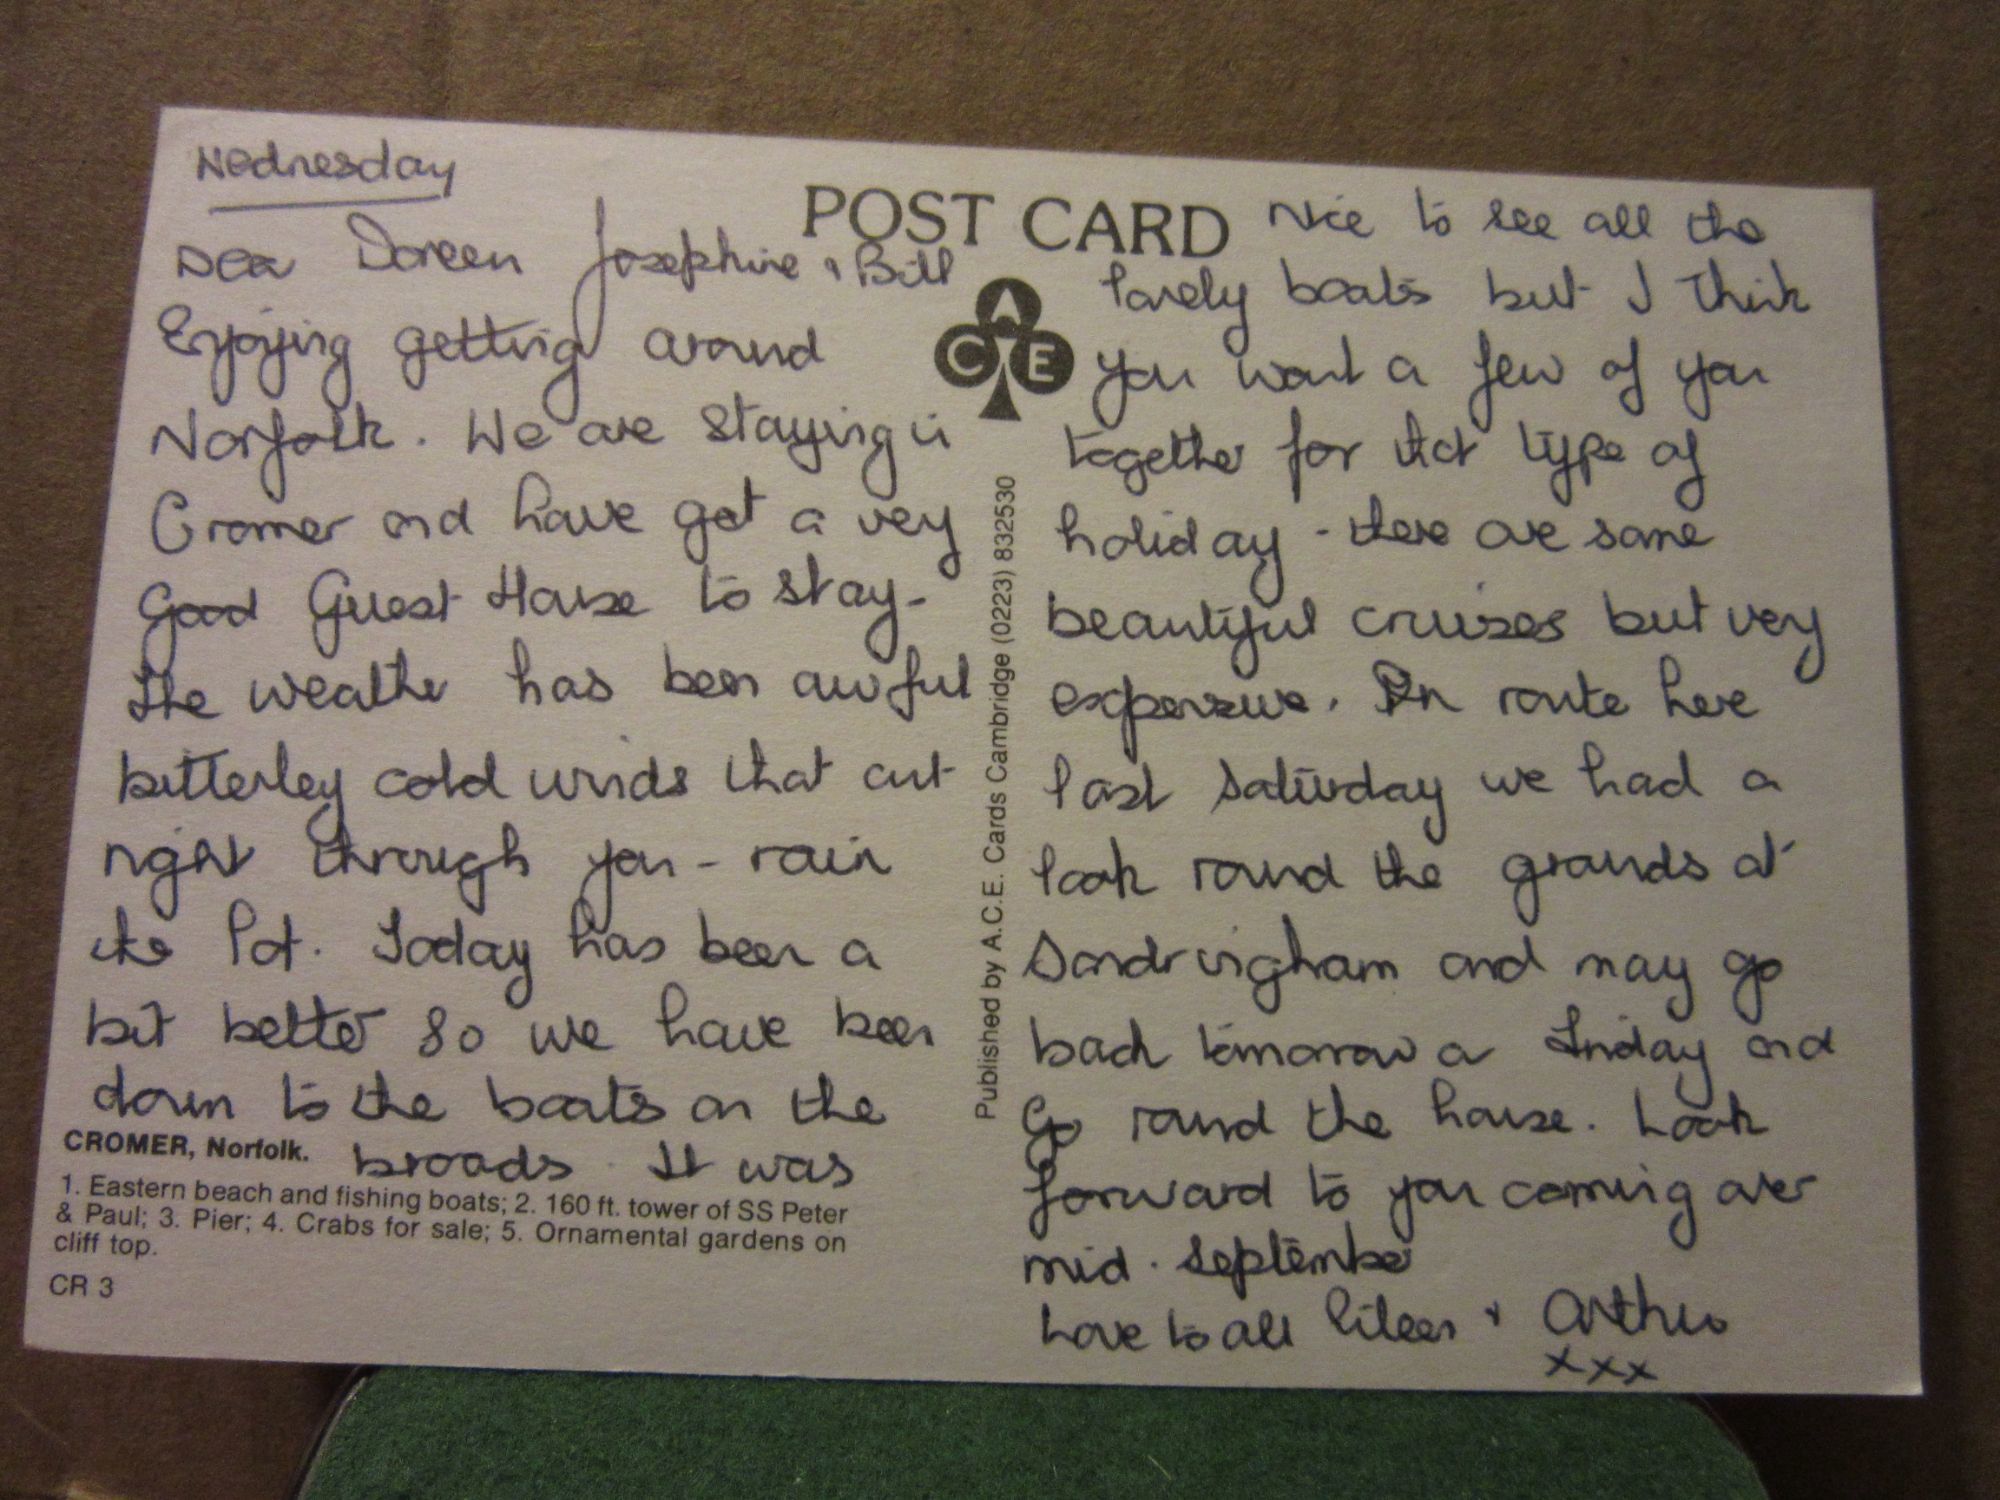 Wednesday
Dear Doreen Josephine & Bill
Enjoying getting around
Norfolk. We are staying in
Cromer and have got a very
Good Guest House to stay -
the weather has been awful
bitterley cold winds that cut
right through you - rain
the lot. Today has been a
bit better so we have been
down to the boats on the
broads. It was
CROMER, Norfolk.
1. Eastern beach and fishing boats; 2. 160 ft. tower of SS Peter
& Paul; 3. Pier; 4. Crabs for sale; 5. Ornamental gardens on
cliff top.
CR 3
POST CARD
ACE
Published by A.C.E. Cards Cambridge (0223) 832530
Nice to see all the
lovely boats but I think
you want a few of you
together for that type of
holiday - there are some
beautiful cruises but very
expensive. En route here
last Saturday we had a
look round the grounds at
Sandringham and may go
back tomorrow or Friday and
Go round the house. Look
forward to you coming over
mid. September
Love to all Eileen & Arthur
xxx